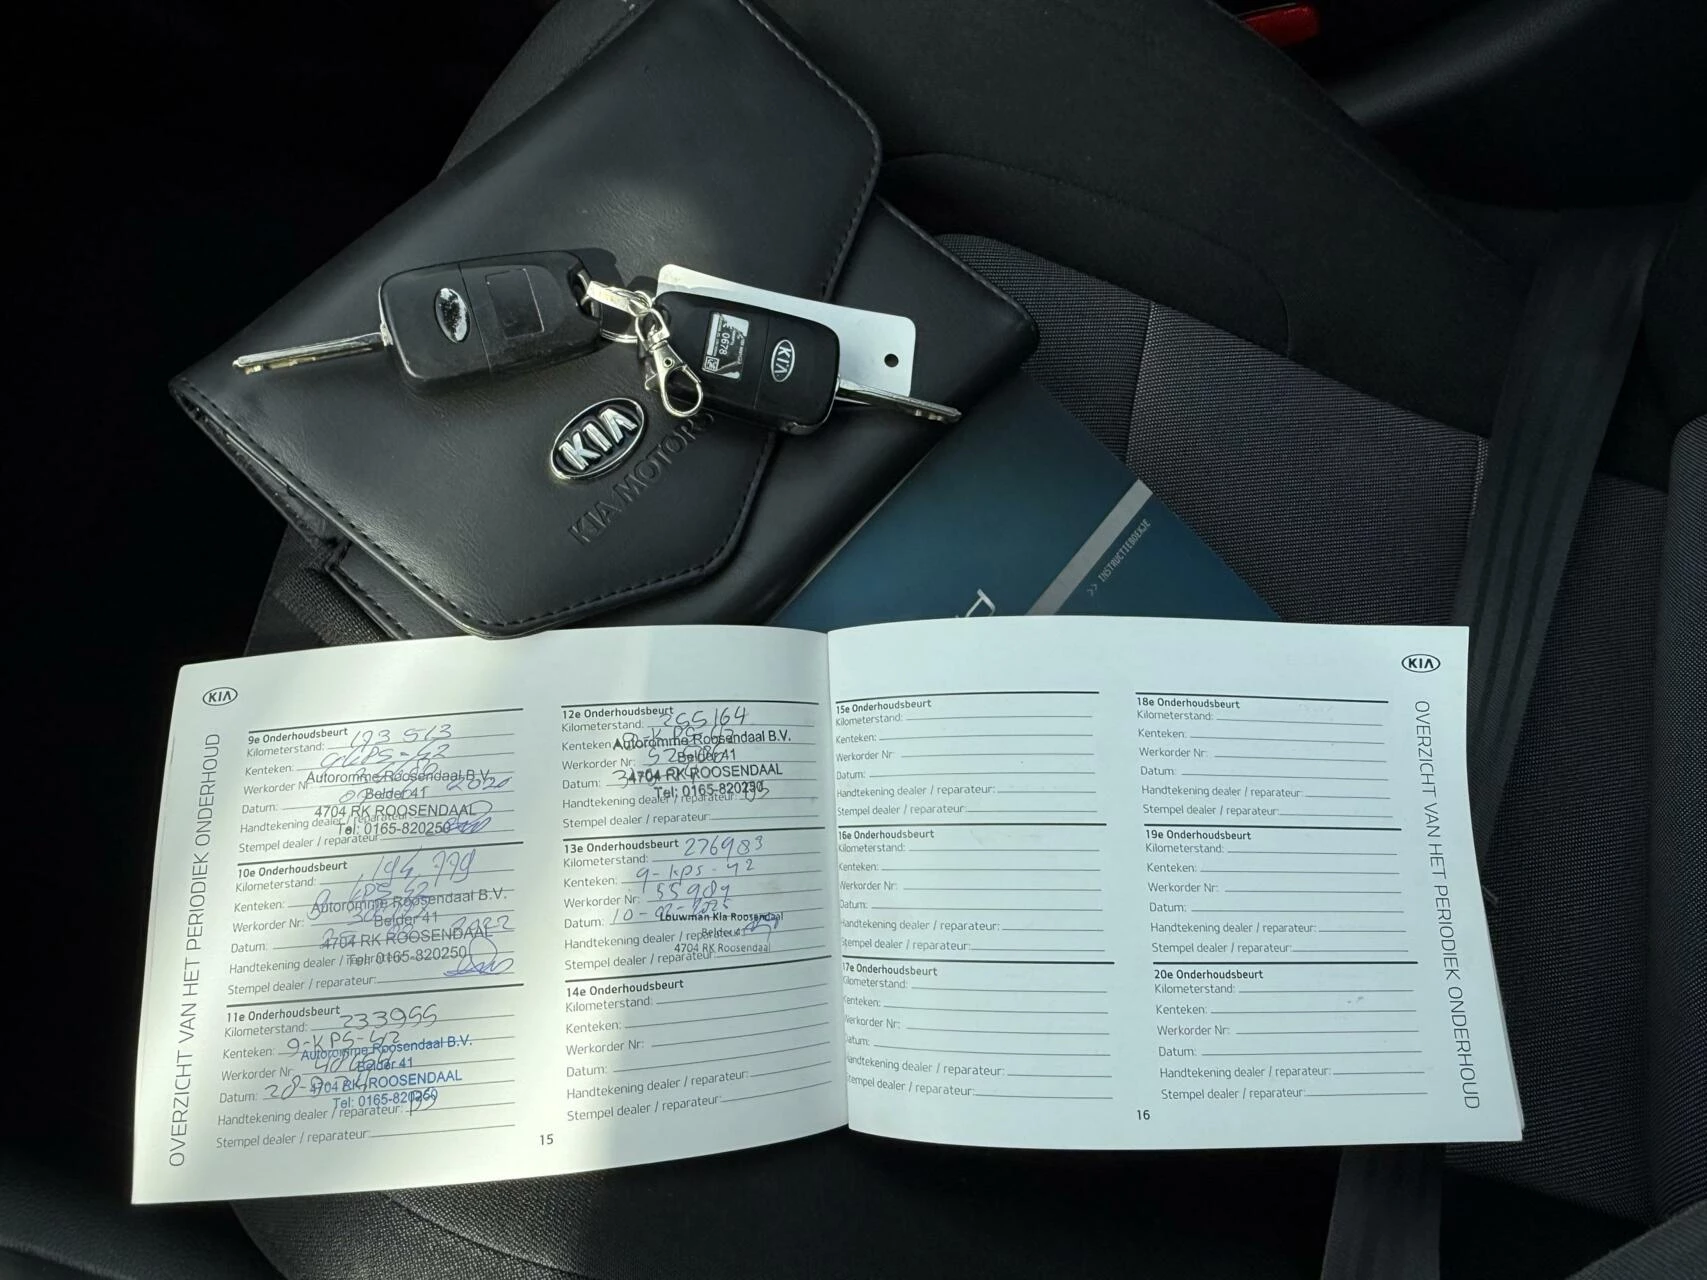 KIA
0678
KIA
KIA MOTORS
>> INSTRUCTIEBOEKJE
KIA
OVERZICHT VAN HET PERIODIEK ONDERHOUD
9e Onderhoudsbeurt
Kilometerstand: 173 513
Kenteken: 9-KPS-42
Werkorder Nr:
Datum: 2020
Handtekening dealer / reparateur:
Stempel dealer / reparateur:
Autoromme Roosendaal B.V.
Belder 41
4704 RK ROOSENDAAL
Tel: 0165-820250
10e Onderhoudsbeurt
Kilometerstand: 194.779
Kenteken: 9-KPS-42
Werkorder Nr:
Datum:
Handtekening dealer / reparateur:
Stempel dealer / reparateur:
Autoromme Roosendaal B.V.
Belder 41
4704 RK ROOSENDAAL
Tel: 0165-820250
11e Onderhoudsbeurt
Kilometerstand: 233955
Kenteken: 9-KPS-42
Werkorder Nr:
Datum:
Handtekening dealer / reparateur:
Stempel dealer / reparateur:
Autoromme Roosendaal B.V.
Belder 41
4704 RK ROOSENDAAL
Tel: 0165-820250
12e Onderhoudsbeurt
Kilometerstand: 255164
Kenteken: 9-KPS-42
Werkorder Nr:
Datum:
Handtekening dealer / reparateur:
Stempel dealer / reparateur:
Autoromme Roosendaal B.V.
Belder 41
4704 RK ROOSENDAAL
Tel: 0165-820250
13e Onderhoudsbeurt
Kilometerstand: 276983
Kenteken: 9-kps-42
Werkorder Nr: 55989
Datum: 10-
Handtekening dealer / reparateur:
Stempel dealer / reparateur:
Louwman Kia Roosendaal
Belder 41
4704 RK Roosendaal
14e Onderhoudsbeurt
Kilometerstand:
Kenteken:
Werkorder Nr:
Datum:
Handtekening dealer / reparateur:
Stempel dealer / reparateur:
15
15e Onderhoudsbeurt
Kilometerstand:
Kenteken:
Werkorder Nr:
Datum:
Handtekening dealer / reparateur:
Stempel dealer / reparateur:
16e Onderhoudsbeurt
Kilometerstand:
Kenteken:
Werkorder Nr:
Datum:
Handtekening dealer / reparateur:
Stempel dealer / reparateur:
17e Onderhoudsbeurt
Kilometerstand:
Kenteken:
Werkorder Nr:
Datum:
Handtekening dealer / reparateur:
Stempel dealer / reparateur:
18e Onderhoudsbeurt
Kilometerstand:
Kenteken:
Werkorder Nr:
Datum:
Handtekening dealer / reparateur:
Stempel dealer / reparateur:
19e Onderhoudsbeurt
Kilometerstand:
Kenteken:
Werkorder Nr:
Datum:
Handtekening dealer / reparateur:
Stempel dealer / reparateur:
20e Onderhoudsbeurt
Kilometerstand:
Kenteken:
Werkorder Nr:
Datum:
Handtekening dealer / reparateur:
Stempel dealer / reparateur:
16
KIA
OVERZICHT VAN HET PERIODIEK ONDERHOUD